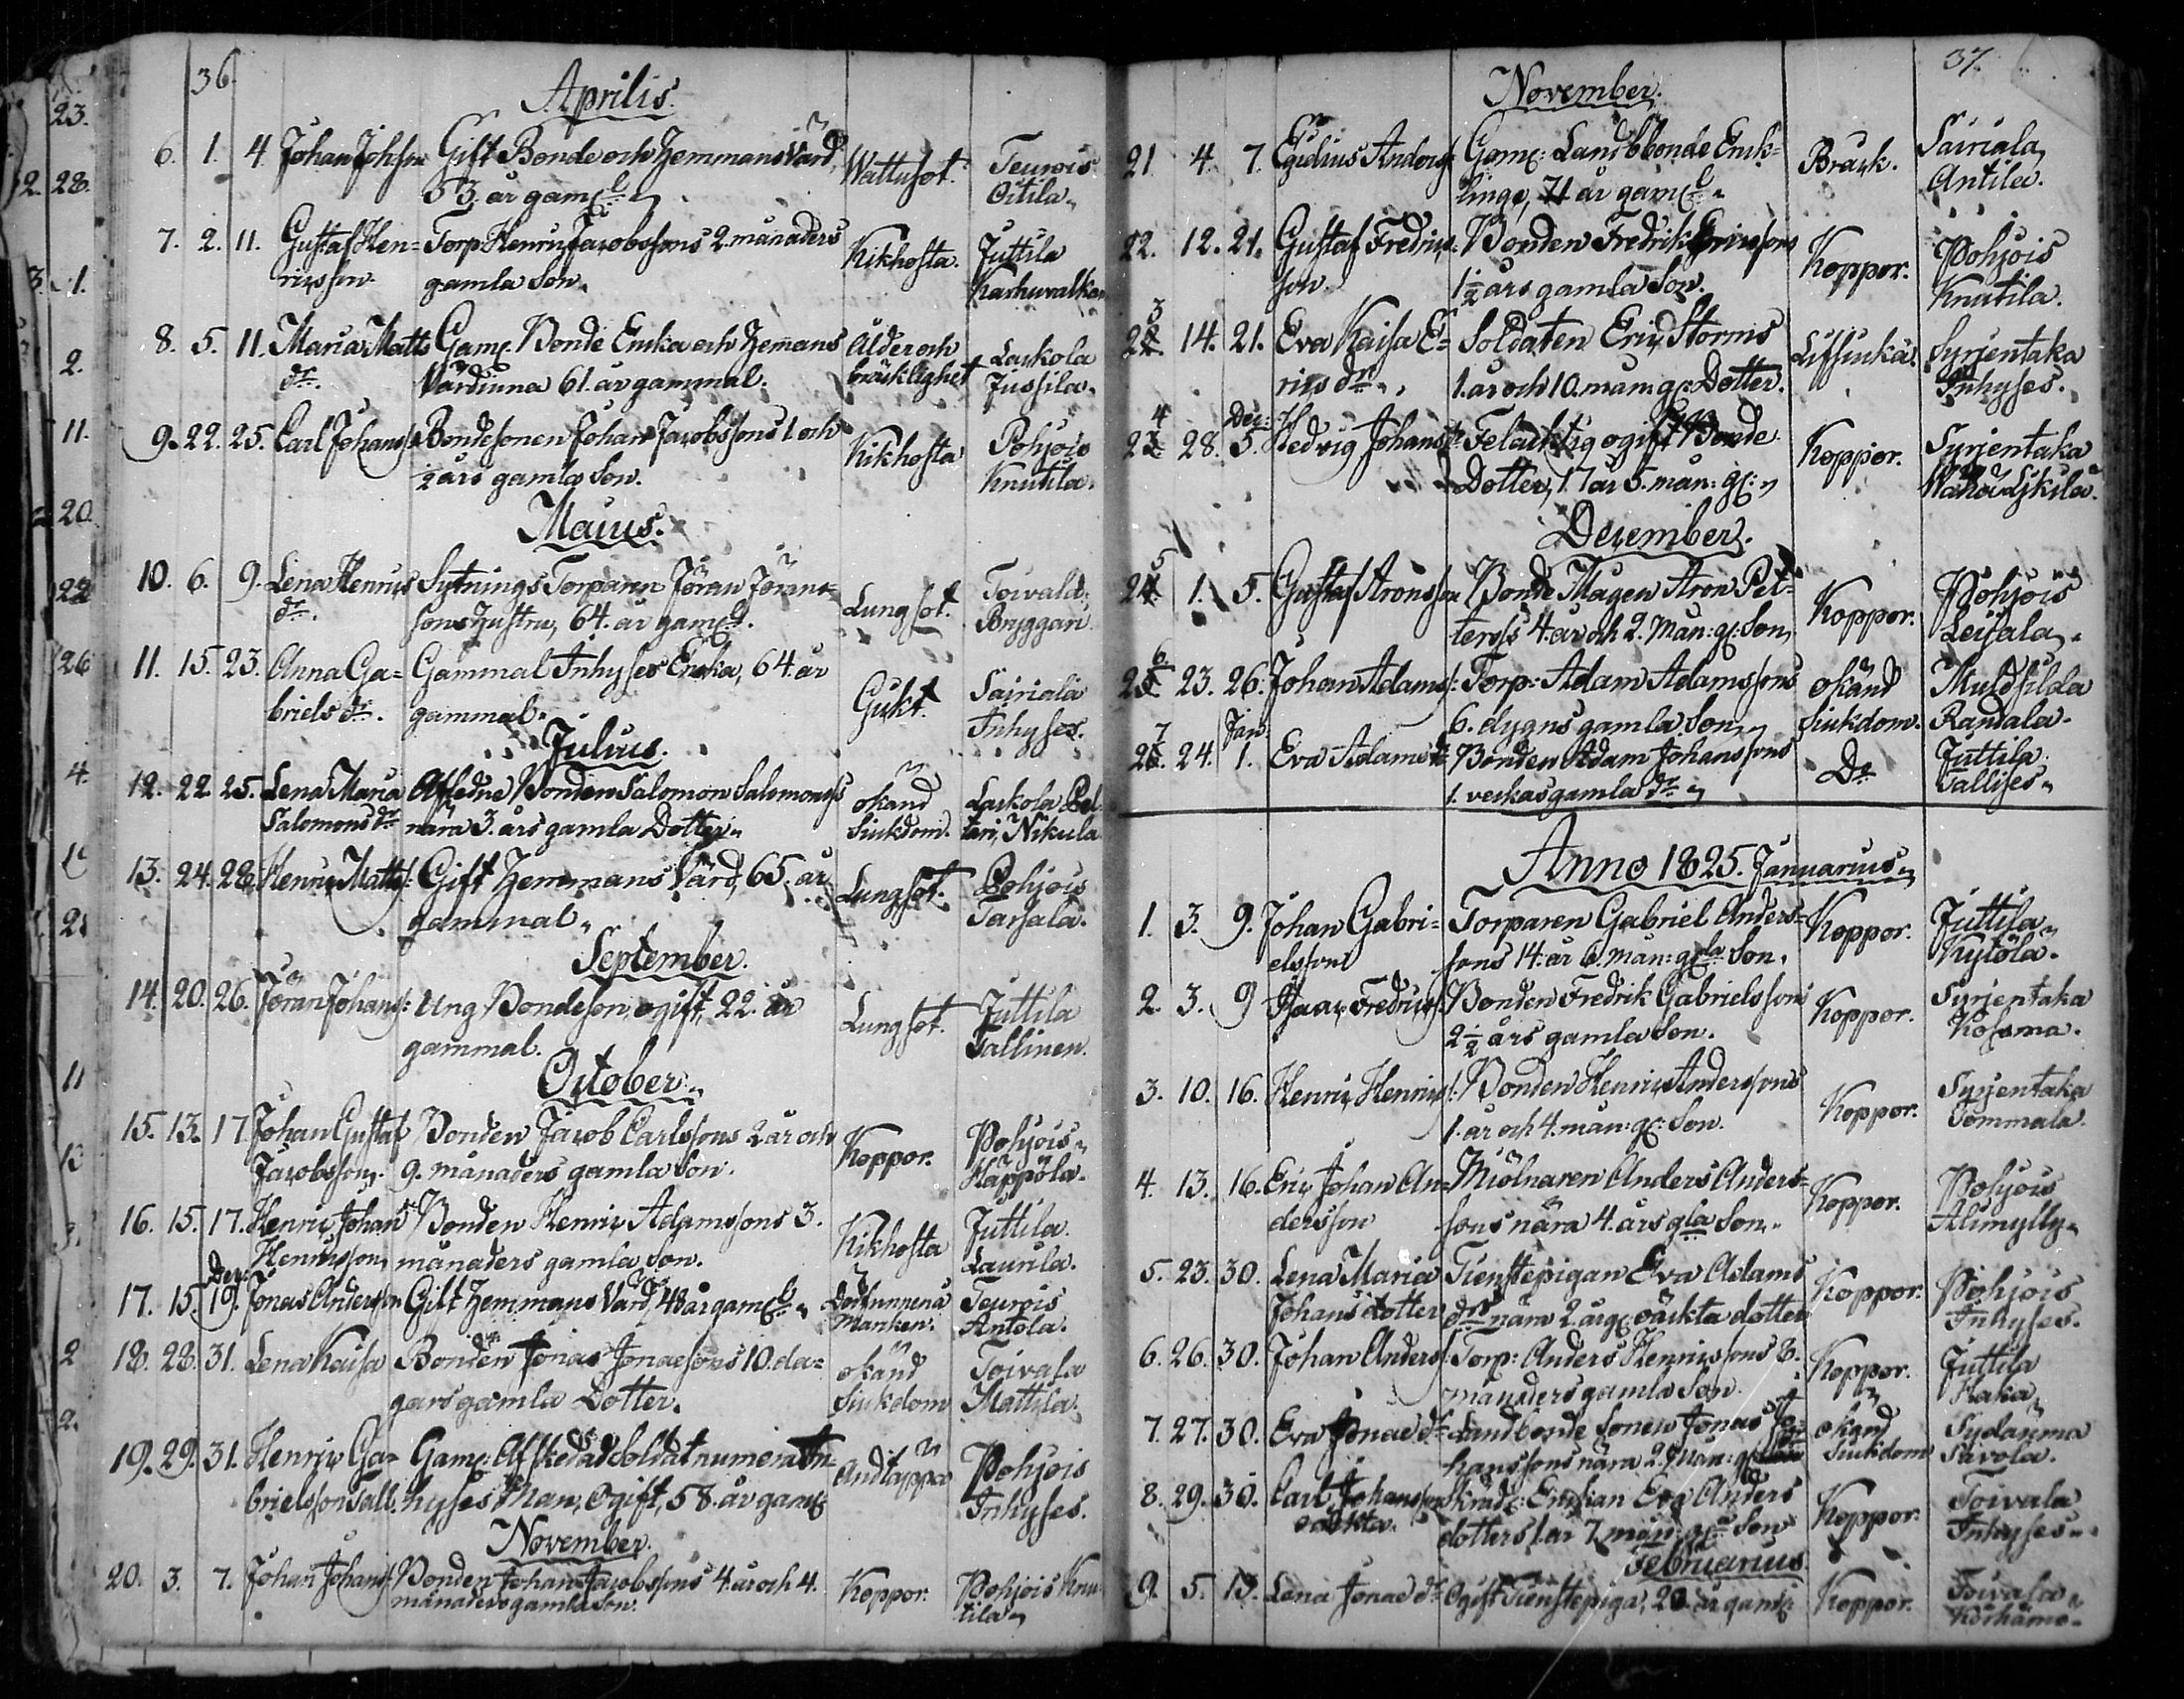 36.
Aprilis.
6. 1. 4. Johan Johsson Gift Bonde och Hemmans Värd, Wattusot. Teurois
53. år gam: Oitila
7. 2. 11. Gustaf Hen= Torp: Henric Jacobssons 2. månaders Kikhosta. Juttila
ricsson. gamla Son.
8. 5. 11. Maria Matts Gam: Bonde Encka och Hemans Ålder och Laskola
dr. Värdinna 61. år gammal. bräcklighet Jussila.
9. 22. 25. Carl Johans: Bondesonen Johan Jacobssons 1. och Kikhosta Pohjois
½ års gamla Son. Knutila.
Maius.
10. 6. 9. Lena Henrics Sytnings Torparen Jöran Jörans= Lungsot. Toivala
dr. sons Hustru, 64. år gam: Bryggari
11. 15. 23. Anna Ga= Gammal Inhyses Encka, 64. år Gickt. Sairiala
briels dr. gammal. Inhyses.
Julius.
12. 22. 25. Lena Maria Afledne Bonden Salomon Salomons okänd Laskola
Salomons dr nära 3. års gamla Dotter Siukdom. Nikula
13. 24. 28. Henric Matts: Gift Hemmans Värd, 65. år Lungsot. Pohjois
gammal. Tarjala.
September.
14. 20. 26. Jöran Johans: Ung Bondeson, ogift, 22. år Lungsot. Juttila
gammal. Tallinen.
October.
15. 13. 17. Johan Gustaf Bonden Jacob Carlssons 2. år och Koppor. Pohjois
Jacobsson. 9. månaders gamla Son. Käppölä.
16. 15. 17. Henric Johan Bonden Henric Adamssons 3. Kikhosta Juttila.
Henricsson månaders gamla Son. Laurila.
Dec:
17. 15. 19. Jonas Andersson Gift Hemmans Värd, 48 år gam: Teurois
Antola.
18. 28. 31. Lena Kaisa Bonden Jonas Jonaesons 10. da= okänd Toivala
gars gamla Dotter. Siukdom Mattila.
19. 29. 31. Henric Ga= Gam: Afskedad Soldat numera In= Andtäppa Pohjois
brielsson Tall. hyses Man, Ogift, 58. år gam: Inhyses.
November.
20. 3. 7. Johan Johans: Bonden Johan Jacobssons 4. år och 4. Koppor. Pohjois Knu
månaders gamla Son. tila
37.
November.
21. 4. 7. Egidius Anders: Gam: Landbbonde Enck= Bråck. Sairiala
linge, 71 år gam: Antila.
22. 12. 21. Gustaf Fredrics: Bonden Fredrik Ericssons Koppor. Pohjois
son. 1½ års gamla Son. Knutila.
3
22. 14. 21. Eva Kaisa E= Soldaten Eric Storms Syrjentaka
rics dr. 1. år och 10. mån: g: Dotter. Inhyses.
4 Dec:
23 28. 5. Hedvig Johans dr Felaktig ogift Bonde Koppor. Syrjentaka
Dotter, 17 år 5. mån: g:
December.
5
24. 1. 5. Gustaf Aronsson Bonde Mågen Aron Pet= Koppor. Pohjois
terss 4. år och 2. Mån: g: Son Leijala.
6
25. 23. 26. Johan Adams: Torp: Adam Adamssons okänd
6. dygns gamla Son Siukdom. Randala.
7 Jan
26. 24. 1. Eva Adams dr Bonden Adam Johanssons Do Juttila
1. veckas gamla dr Tallises
Anno 1825. Januarius
1. 3. 9. Johan Gabri= Torparen Gabriel Anders= Koppor. Juttila
elsson sons 14. år 6. mån: gla Son. Kytölä.
2. 3. 9 Isaac Fredrics: Bonden Fredrik Gabrielssons Koppor. Syrjentaka
2½ års gamla Son. Kossma.
3. 10. 16. Henric Henrics: Bonden Henric Anderssons Koppor. Syrjentaka
1. år och 4. mån: g: Son. Tommala.
4. 13. 16. Eric Johan An= Miölnaren Anders Anders= Koppor. Pohjois
dersson sons nära 4. års gla Son. Alimylly
5. 23. 30. Lena Maria Tienstepigan Eva Adams Koppor. Pohjois
Johans dotter dr nära 2. år g: oäckta dotter Inhyses.
6. 26. 30. Johan Anders: Torp: Anders Henricssons 8. Koppor. Juttila
månaders gamla Son. Kaka
7. 27. 30. Eva Jonae dr Landbonde Sonen Jonas Jo= okänd Sydänma
hanssons nära 2. Mån: Siukdom Sivola.
8. 29. 30. Carl Johansson Enckan Eva Anders Koppor. Toivala
oäckta. dotters 1. år 7. mån: Son Inhyses
Februarius.
9. 5. 13. Lena Jonae dr Ogift Tienstepiga, 20. år gam: Koppor. Toivala